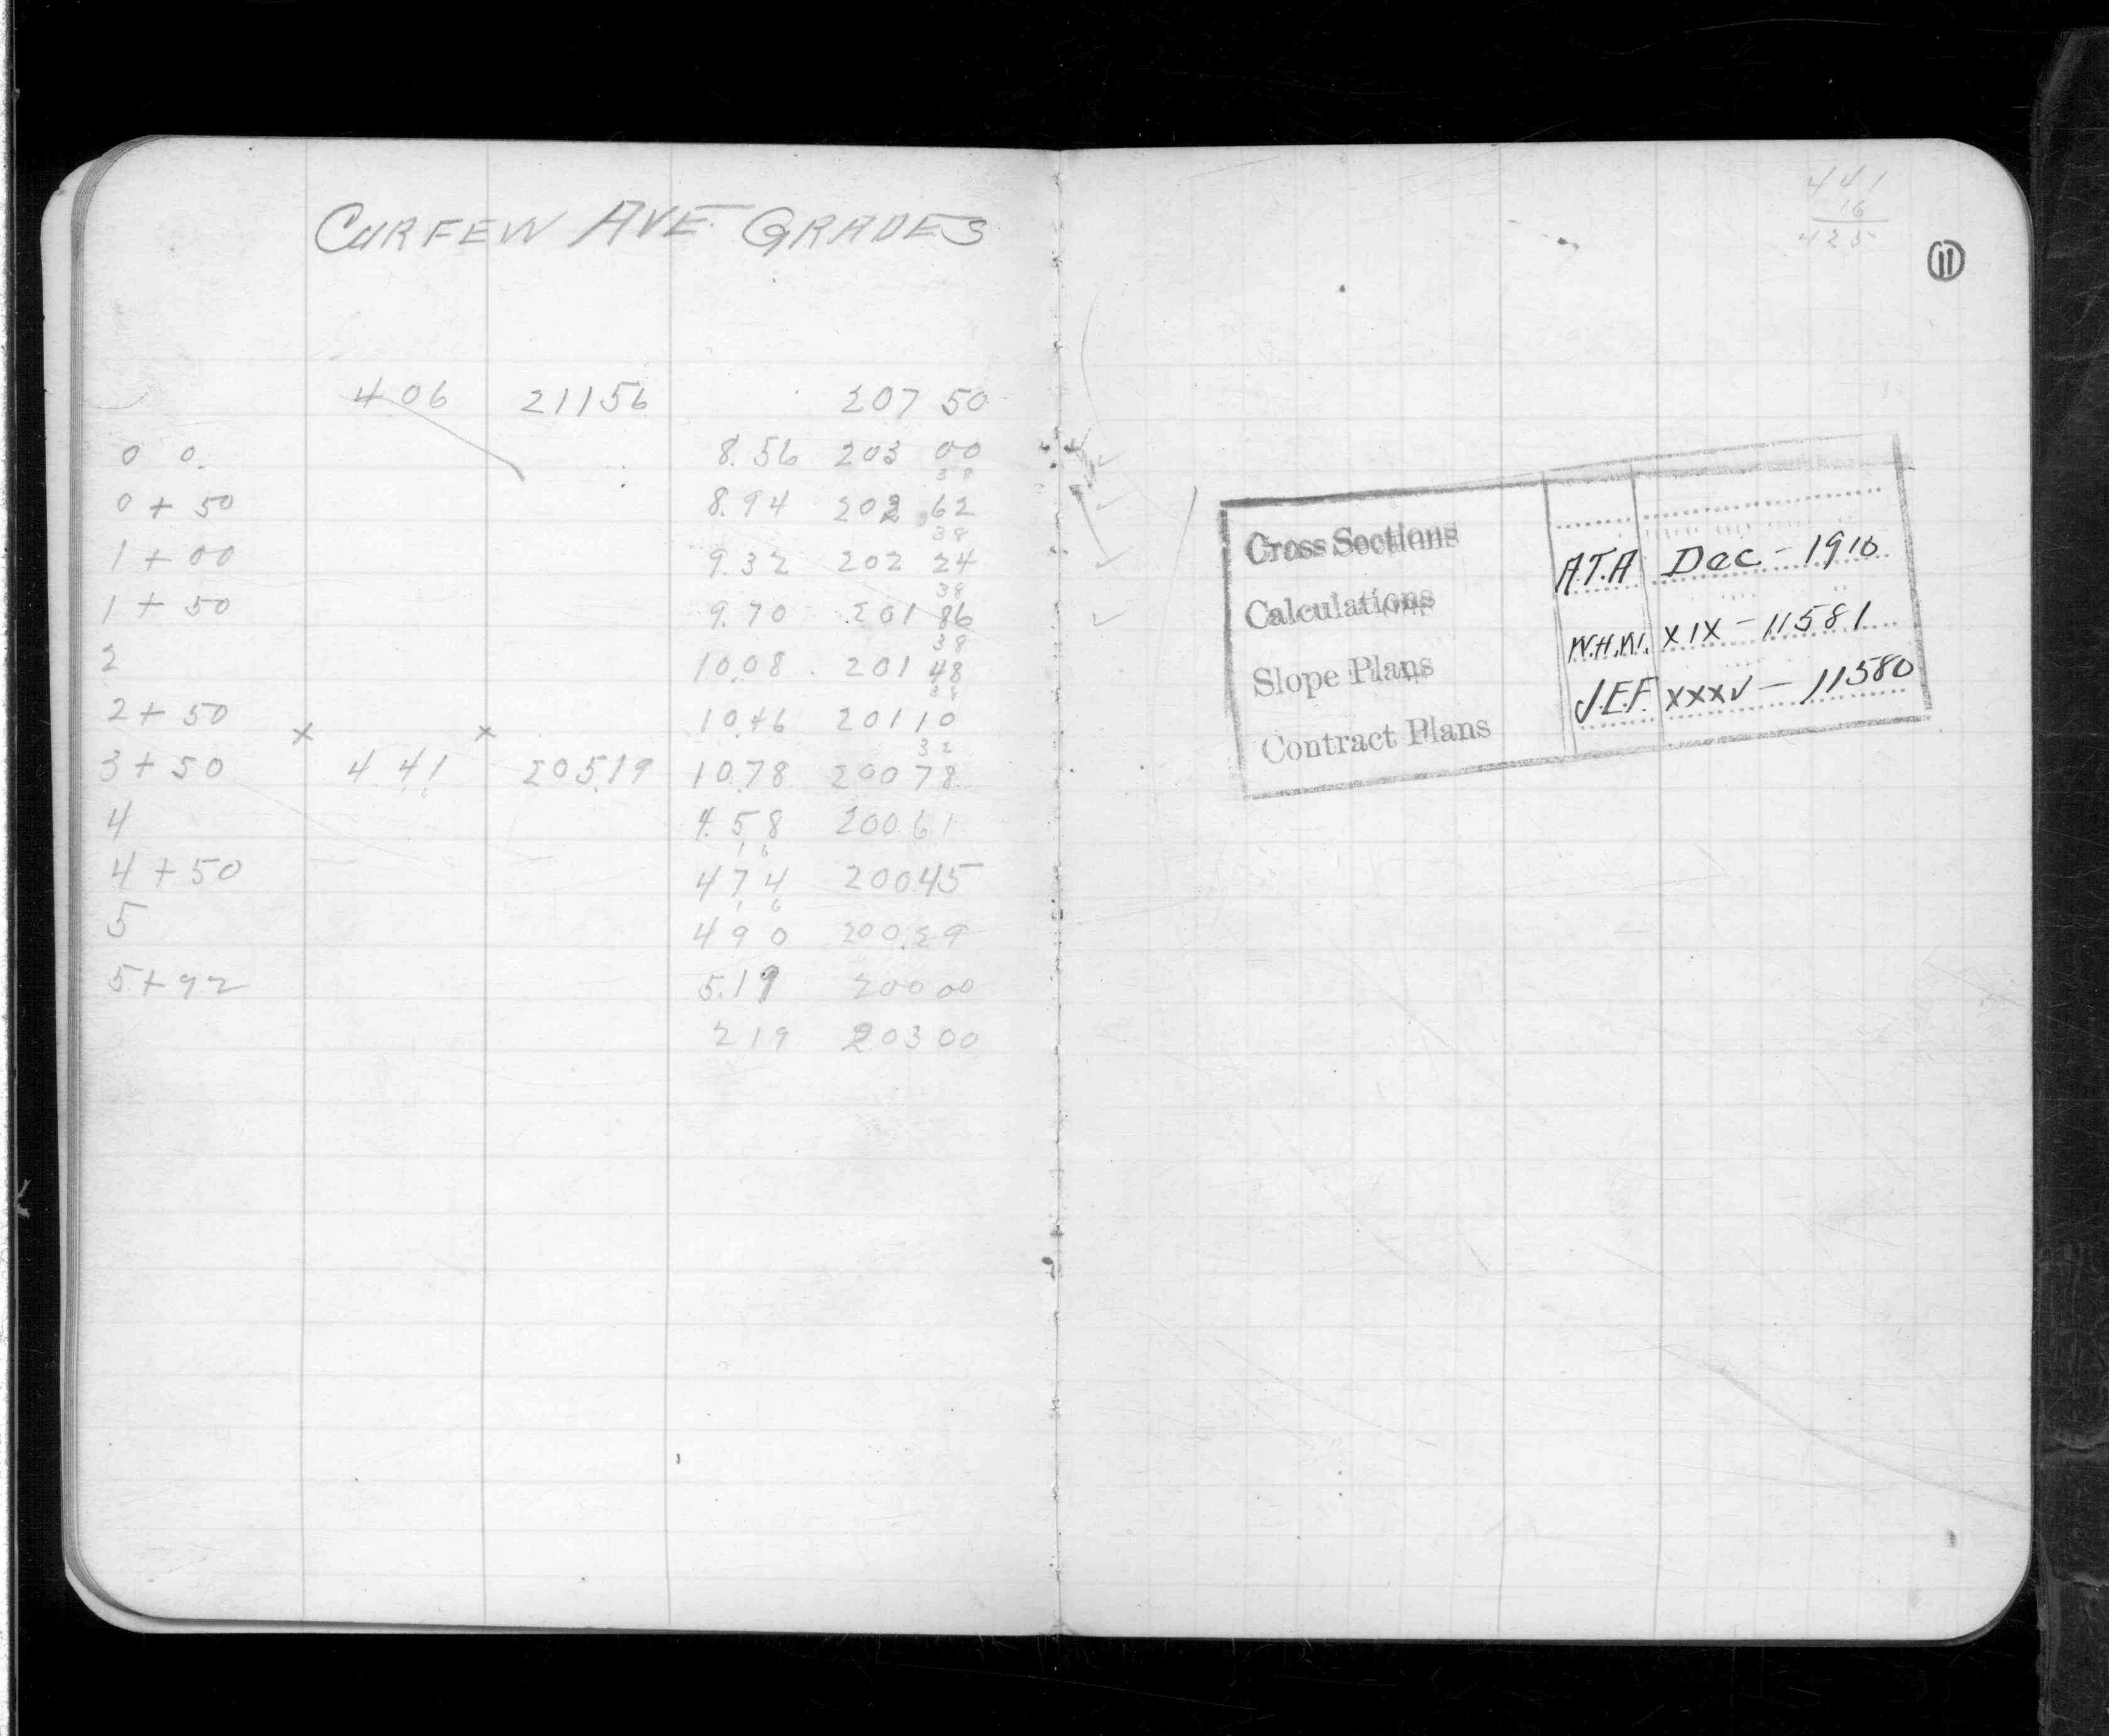 CURFEW AVE GRADES
406 21156 207 50
0 0. 8.56 203 00
38
0 + 50 8.94 202 62
38
1 + 00 9.32 202 24
38
1 + 50 9.70 201 86
38
2 10.08 201 48
38
2 + 50 10.46 201 10
32
3 + 50 × 4 41 × 205.19 10.78 200 78
4 4.58 200 61
16
4 + 50 4 7 4 200.45
16
5 4 9 0 200.29
5 + 92 5.19 200 00
2 19 203 00
441
16
425
11
Cross Sections A.T.A Dec - 1910
Calculations W.H.W. XIX - 11581
Slope Plans J.E.F. XXXV - 11580
Contract Plans